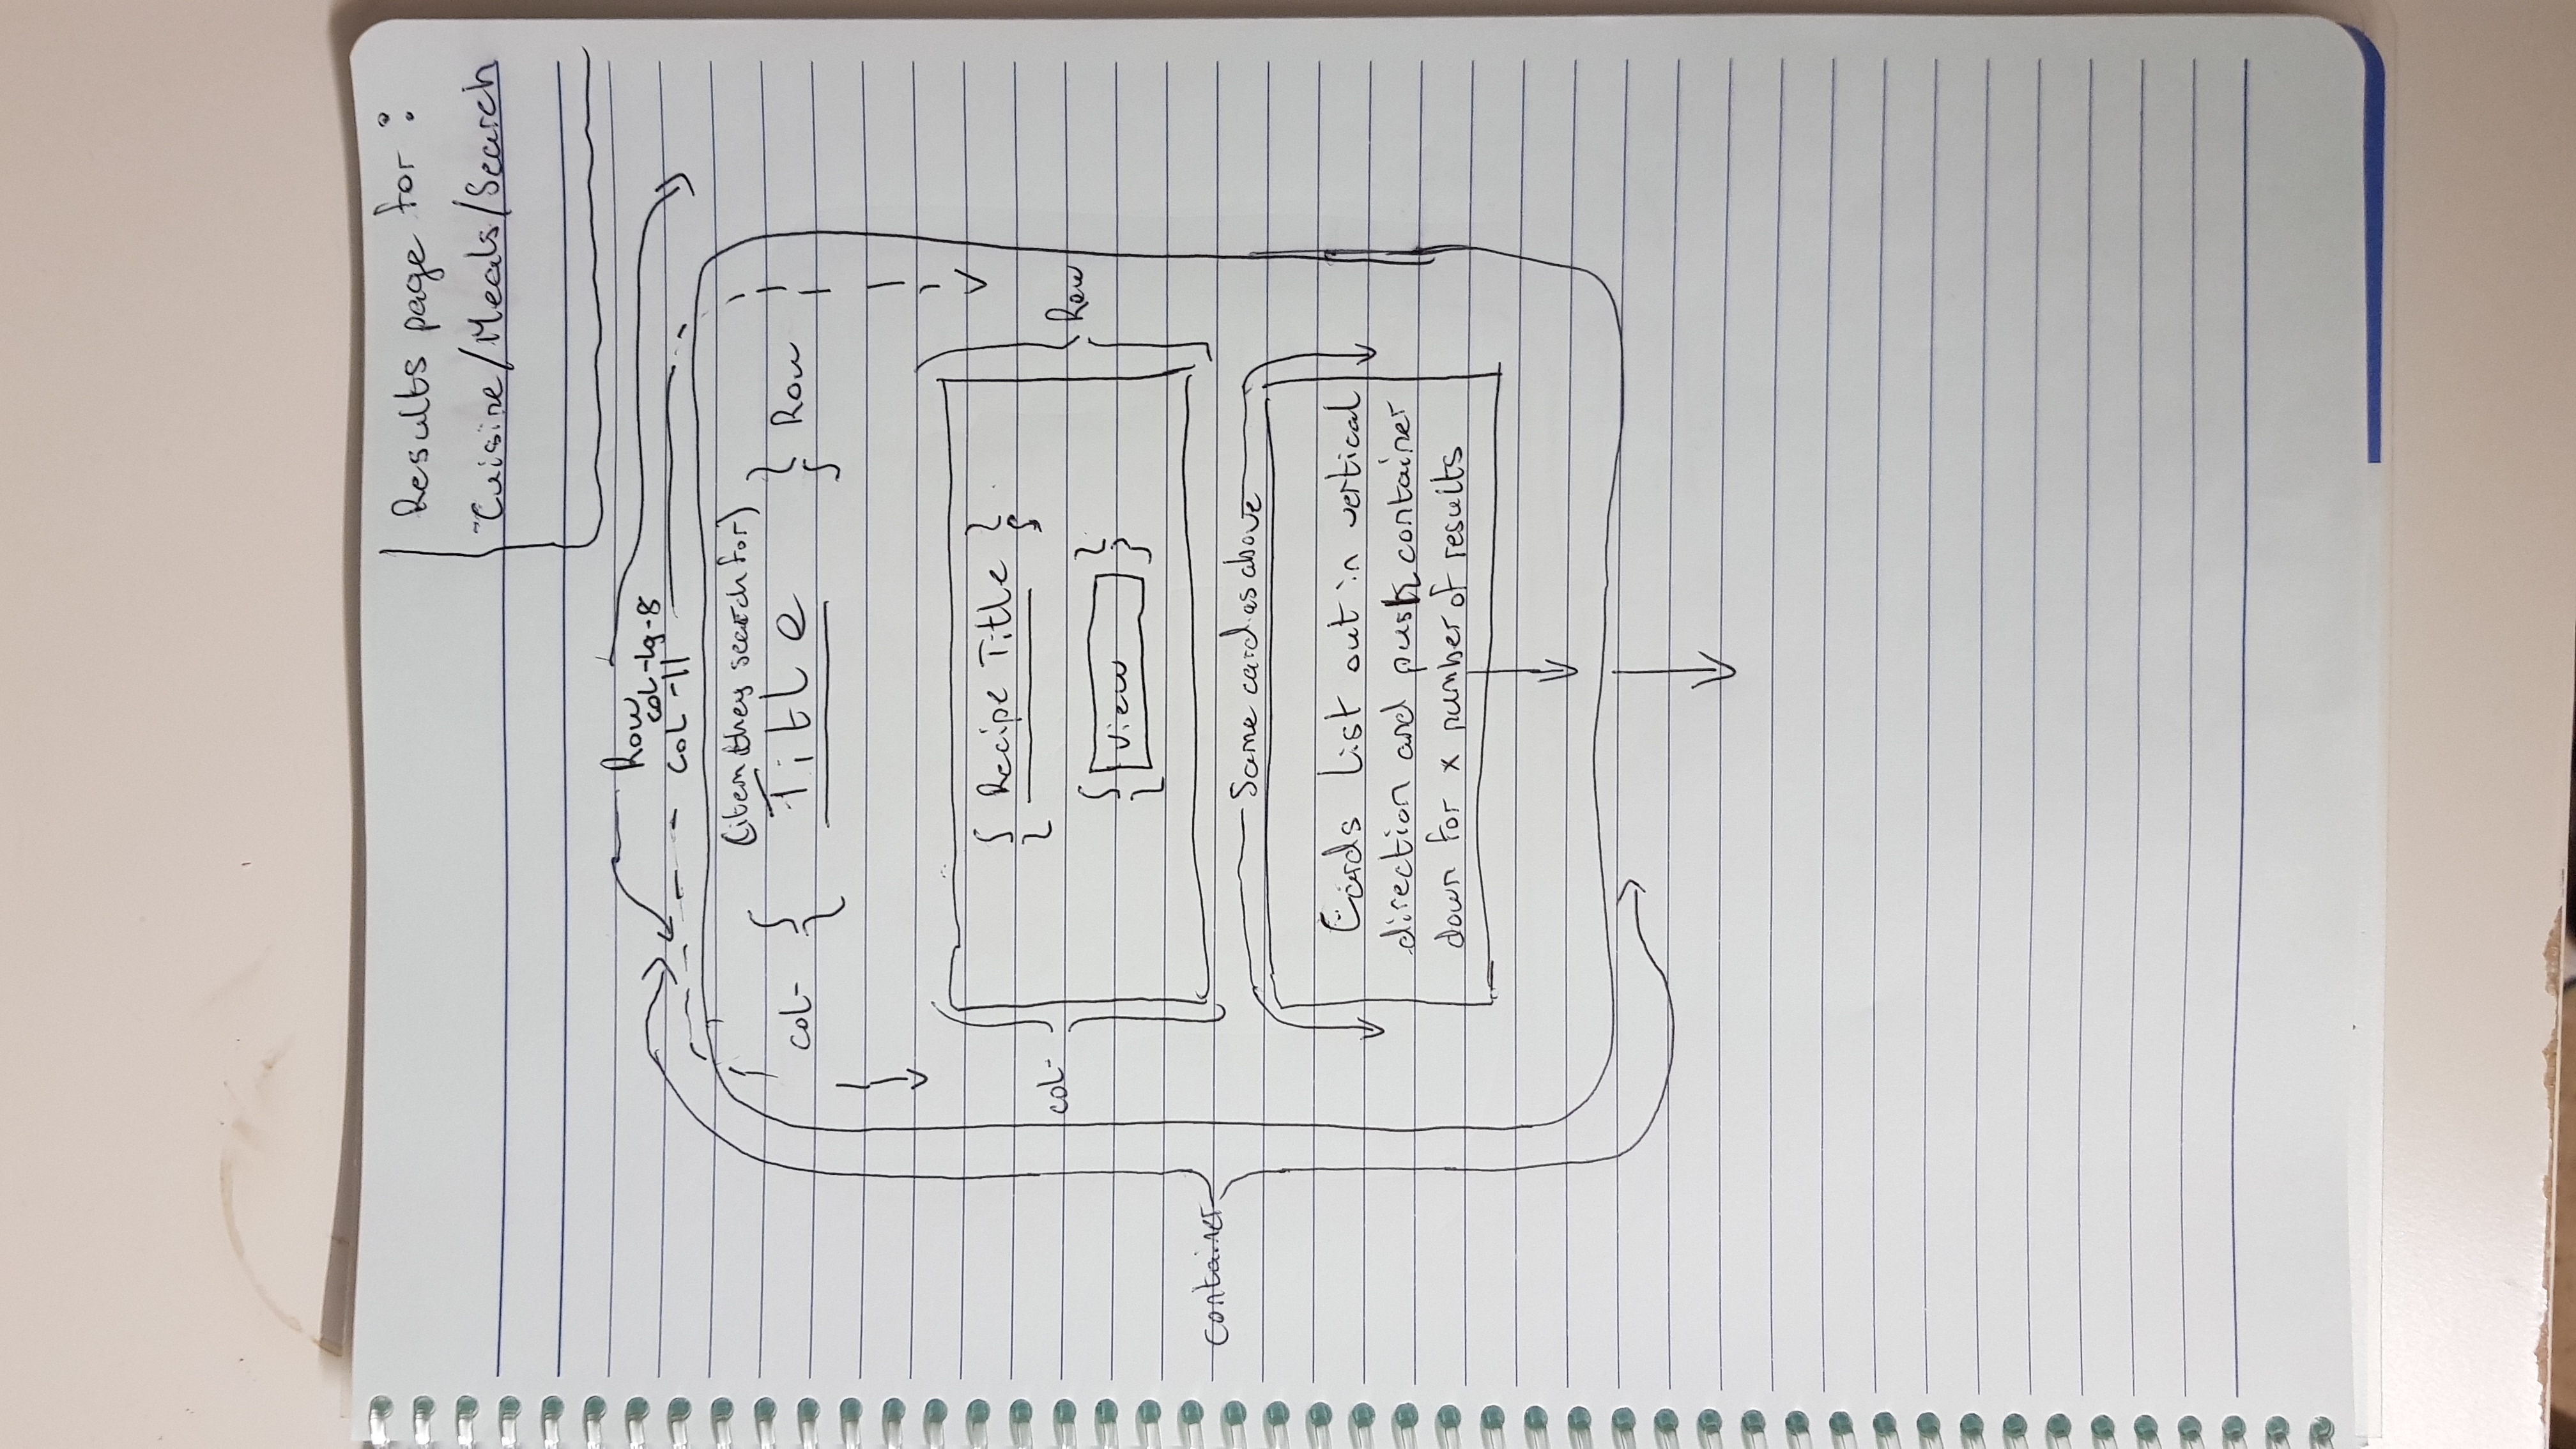 Results page for :
-Cuisine/Meals/Search
Row
col-lg-8
col-11
(item they search for)
col- { Title } Row
{ Recipe Title }
col-
Row
{ View }
container
Same card as above
Cards list out in vertical
direction and push container
down for x number of results